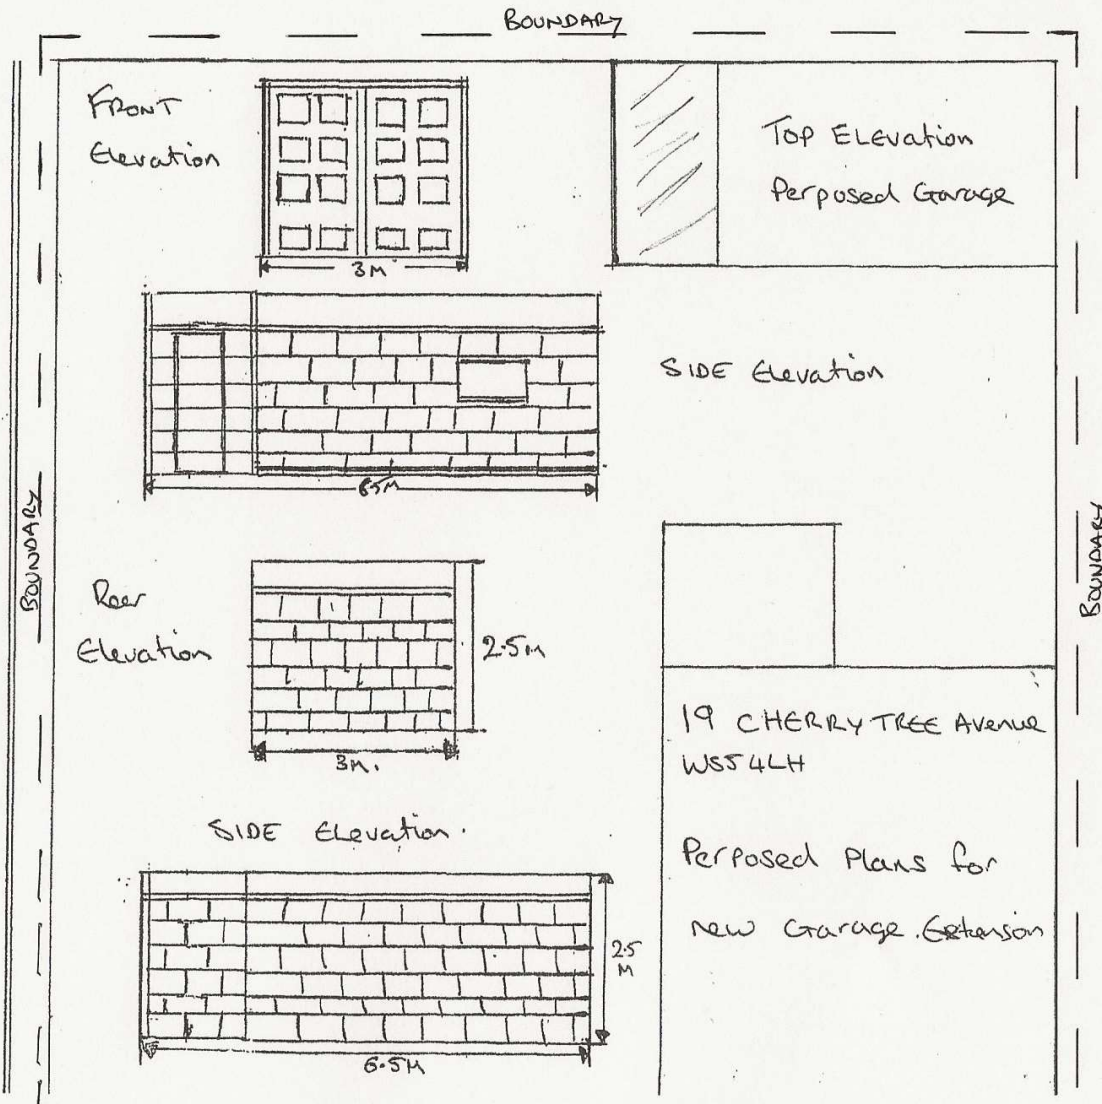 BOUNDARY
FRONT
Elevation
3M
TOP ELEVATION
Perposed Garage
SIDE Elevation
65M
BOUNDARY
BOUNDARY
Rear
Elevation
2.5M
3M.
19 CHERRY TREE Avenue
WS54LH
Perposed Plans for
new Garage.Extension
SIDE Elevation.
2.5
M
6.5M